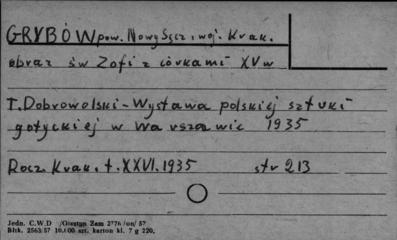 GRYBÓW pow. Nowy Sącz, woj. Krak.
obraz św Zofi z córkami XV w
T. Dobrowolski - Wystawa polskiej sztuki
gotyckiej w Warszawie 1935
Rocz. Krak. t. XXVI. 1935 str 213
Jedn. C.W.D /Olsztyn Zam 2776 /on/ 57
Bltk. 2563/57 10.000 szt. karton kl. 7 g 220.